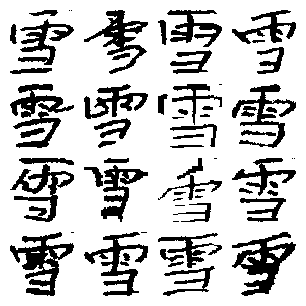 雪雪雪雪
雪雪雪雪
雪雪雪雪
雪雪雪雪